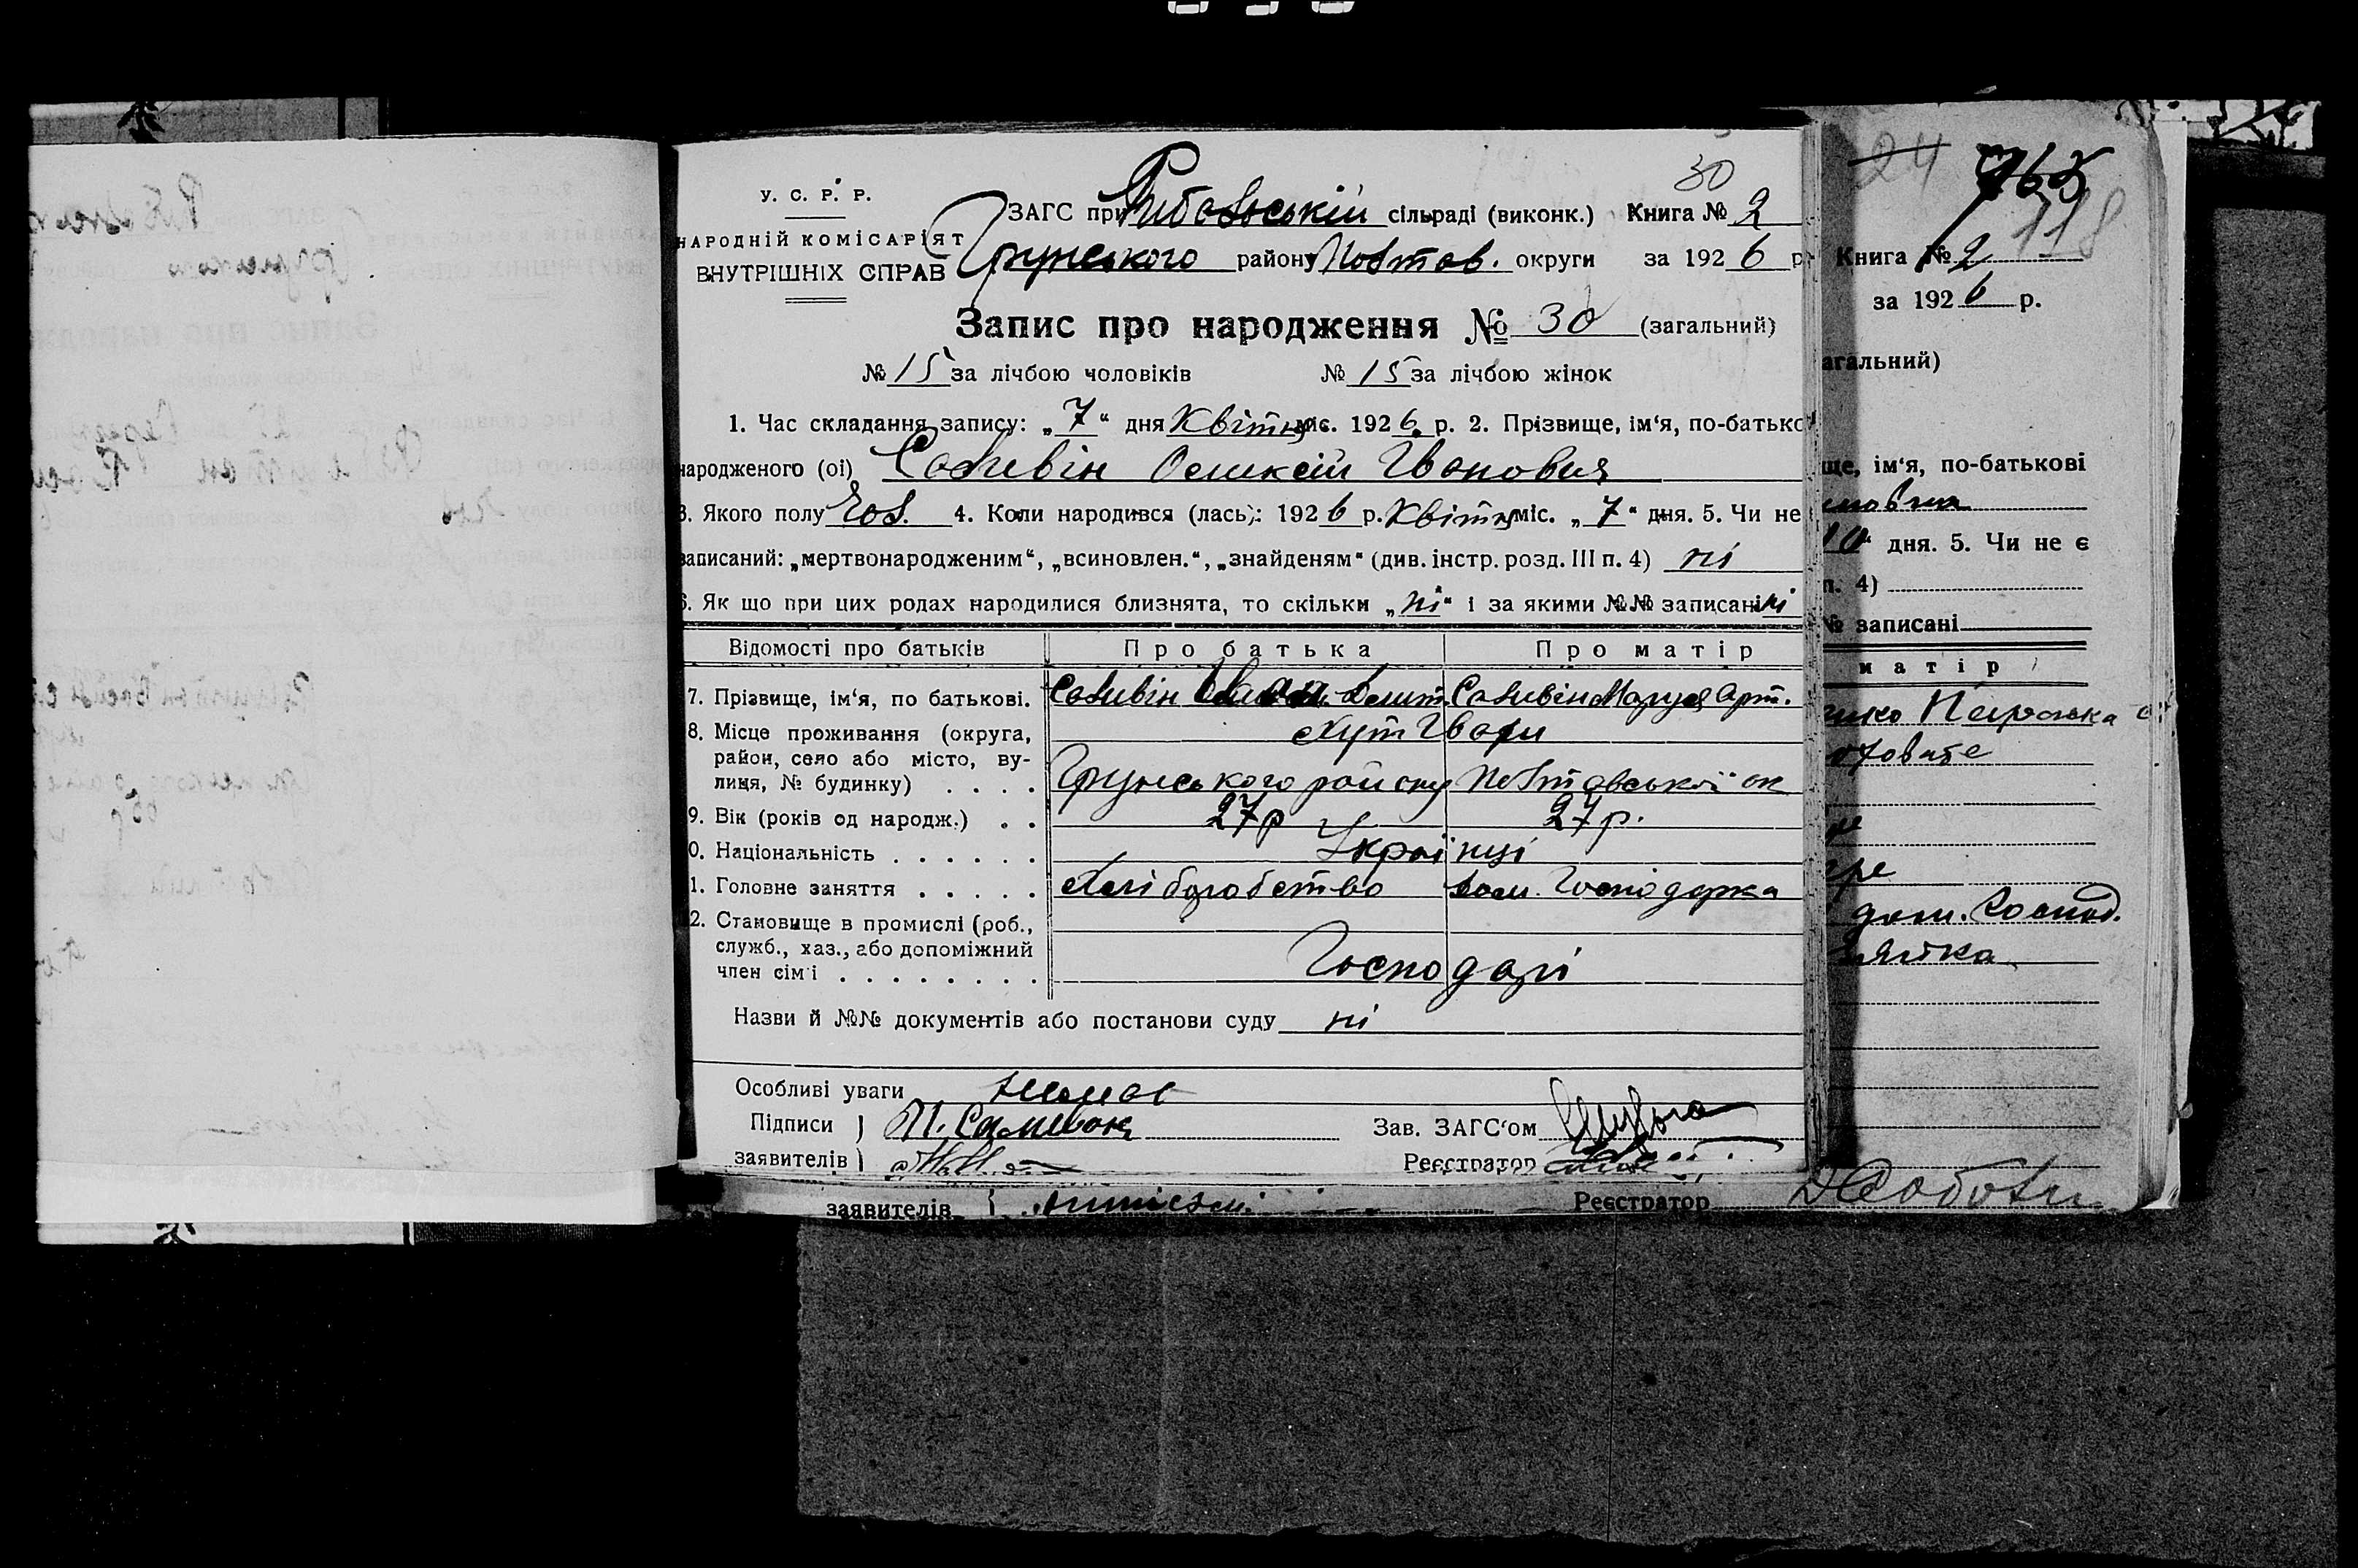 30
У. С. Р. Р.
ЗАГС при Рибальській сільраді (виконк.) Книга № 2
НАРОДНІЙ КОМІСАРІЯТ
ВНУТРІШНІХ СПРАВ
Грунського району Полтав. округи за 1926 р.
Запис про народження № 30 (загальний)
№ 15 за лічбою чоловіків № 15 за лічбою жінок
1. Час складання запису: „7“ дня Квітня міс. 1926 р. 2. Прізвище, ім‘я, по-батько
народженого (ої) Іванович
3. Якого полу Чол. 4. Коли народився (лась): 1926 р. Квітня міс. „7“ дня. 5. Чи не
записаний: „мертвонародженим“, „всиновлен.“, „знайденям“ (див. інстр. розд. III п. 4) ні
6. Як що при цих родах народилися близнята, то скільки „ні“ і за якими №№ записані ні
Відомості про батьків Про батька Про матір
7. Прізвище, ім‘я, по батькові. Маруся Арт.
8. Місце проживання (округа,
район, село або місто, ву-
лиця, № будинку) . . . .
Хут
Грунського району Полтавської ок
9. Вік (років од народж.) . . 27 р 27 р.
0. Національність . . . . . . Українці
1. Головне заняття . . . . . Хліборобство Дом. Господарка
2. Становище в промислі (роб.,
служб., хаз., або допоміжний
член сім‘ї . . . . . . . .
Господарі
Назви й №№ документів або постанови суду ні
Особливі уваги немає
Підписи
заявителів
Зав. ЗАГС‘ом
Реєстратор
заявителів Реєстратор
24
118
Книга № 2
за 1926 р.
агальний)
ще, ім‘я, по-батькові
10“ дня. 5. Чи не є
п. 4)
№ записані
матір
дом. Господ.